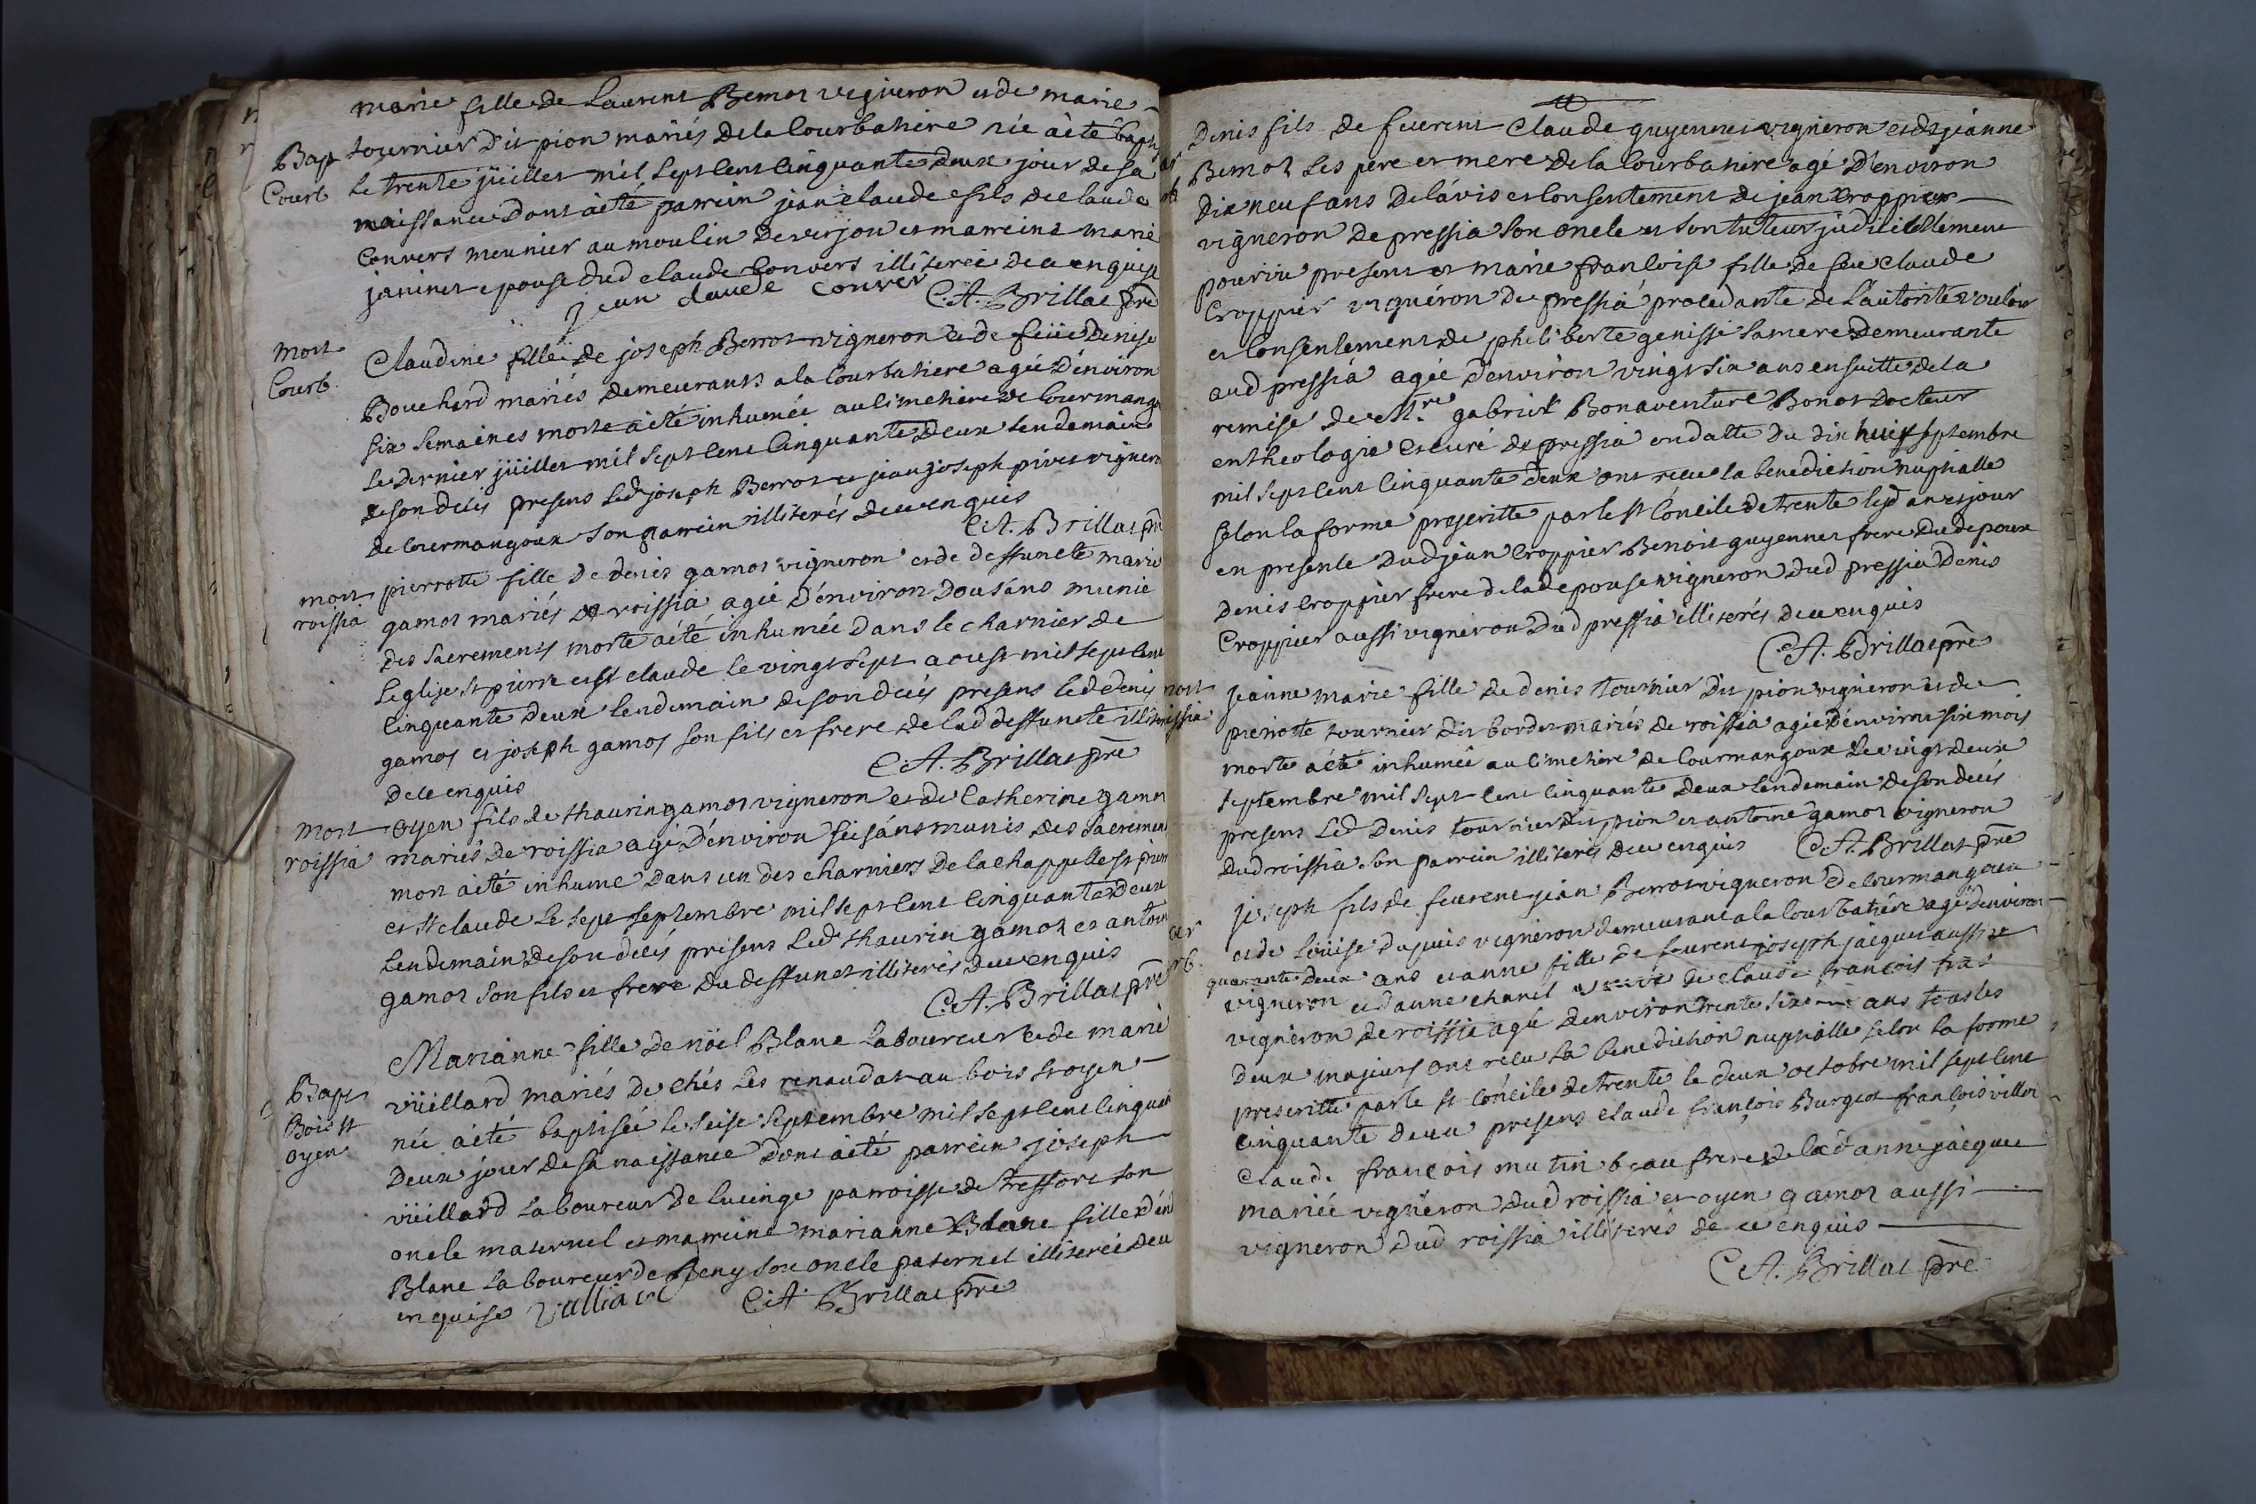 marie fille de laurent Bemot vigneron et de marie
Bap tournier dit pion mariés de la Courbatiere née a été bapt
Courb le trente jüillet mil sept cent cinquante deux jour de sa
naissance dont a été parrein jean claude fils de claude
Convers meunier au moulin de verjon et marreine marie
janinet epouse dud claude Convers illiterée de ce enquise
jean claude convers C.A. Brillat prê
mort Claudine fille de joseph Berrot vigneron et de feüe denise
Courb. Bouchard mariés demeurants a la Courbatiere agée d'environ
six semaines morte a été inhumée au cimetiere de Courmangoux
le dernier jüillet mil sept cent cinquante deux lendemain
de son décés presens led joseph Berrot et jean joseph pivet vigneron
de Courmangoux son parrein illiterés de ce enquis
C.A. Brillat prê
mort pierrotte fille de denis gamot vigneron et de deffuncte marie
roissia gamot mariés de roissia agée d'environ dous ans munie
des sacrements morte a été inhumée dans le charnier de
leglise st pierre et st claude le vingt sept aoust mil sept cent
cinquante deux lendemain de son décés presens led denis
gamot et joseph gamot son fils et frere de lad deffuncte illit
de ce enquis C.A. Brillat prê
mort oyen fils de thaurin gamot vigneron et de Catherine gamo
roissia mariés de roissia agé d'environ seise ans munis des sacremen
mort a été inhumé dans un des charniers de la chappelle st pierre
et st claude le sept septembre mil sept cent cinquante deux
lendemain de son décés presens led thaurin gamot et antoine
gamot son fils et frere du deffunct illiterés de ce enquis
C.A. Brillat prê
Marianne fille de nöel Blanc laboureur et de marie
Bapt vüillard mariés de chés les renaudat au bois st oyen
Bois st née a été baptisée le seise septembre mil sept cent cinquante
oyen deux jour de sa naissance dont a été parrein joseph
vüillard laboureur de lucinge parroisse de treffort son
oncle maternel et marreine marianne Blanc fille de
Blanc laboureur de Beny son oncle paternel illiterée de ce
enquise C.A. Brillat prê
Denis fils de feu claude guyennet vigneron et de jeanne
Bemot ses pere et mere de la Courbatiere agé d'environ
dix neuf ans de l'avis et consentement de jean Croppier
vigneron de pressia son oncle et son tuteur judiciellement
pourvu present et marie françoise fille de feu claude
Croppier vigneron de pressia procedante de l'autorité vouloir
et consentement de philiberte genisse sa mere demeurante
aud pressia agée d'environ vingt six ans ensuitte de la
remise de Mre gabriel Bonaventure Bonot docteur
en theologie et curé de pressia en datte du dix huit septembre
mil sept cent cinquante deux ont receu la benediction nuptialle
selon la forme prescritte par le st Concile de trente lesd an et jour
en presence dud jean Croppier Benoit guyennet frere dud epoux
denis Croppier frere de lad epouse vigneron dud pressia denis
Croppier aussi vigneron dud pressia illiterés de ce enquis
C.A. Brillat prê
mort jeanne marie fille de denis tournier dit pion vigneron et de
roissia pierrotte tournier dit bordet mariés de roissia agée d'environ six mois
morte a été inhumée au cimetiere de Courmangoux le vingt deux
septembre mil sept cent cinquante deux lendemain de son décés
presens led denis tournier dit pion et antoine gamot vigneron
dud roissia son parrein illiterés de ce enquis C.A. Brillat prê
joseph fils de feu jean Berrot vigneron de Courmangoux
et de loüise dupuis vigneron demeurant a la Courbatiere agé d'environ
quarante deux ans et anne fille de feu joseph jacquet aussi
vigneron et d'anne chanel veuve de claude françois
vigneron de roissia agée d'environ trente six ans tous les
deux majeurs ont receu la benediction nuptialle selon la forme
prescritte par le st Concile de trente le deux octobre mil sept cent
cinquante deux presens claude françois Burget françois villon
claude françois mutin beau frere de lad anne jacquet
mariée vigneron dud roissia et oyen gamot aussi
vigneron dud roissia illiterés de ce enquis
C.A. Brillat prê